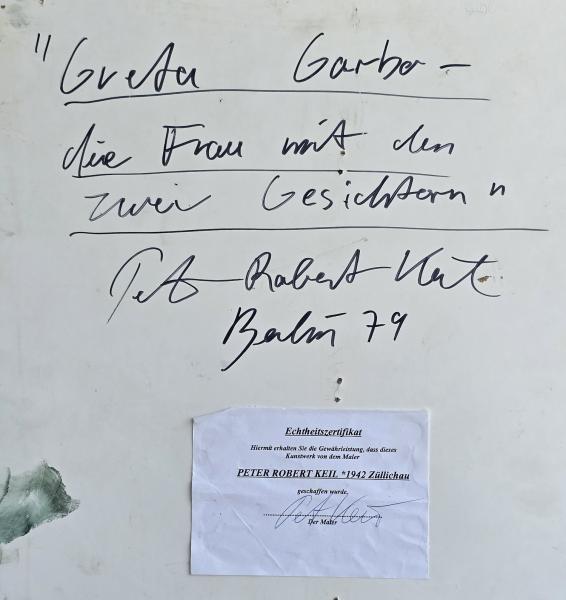 "Greta Garbo –
die Frau mit den
zwei Gesichtern"
Peter Robert Keil
Berlin 79
Echtheitszertifikat
Hiermit erhalten Sie die Gewährleistung, dass dieses
Kunstwerk von dem Maler
PETER ROBERT KEIL *1942 Züllichau
geschaffen wurde.
Pet Keil
Der Maler